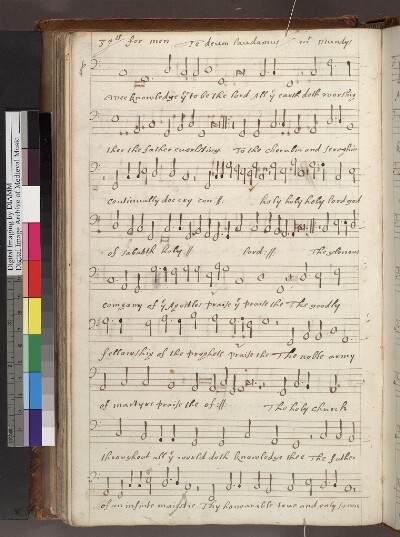 for men Te deum laudamus mr mundys
wee knowledge yᵉ to be the lord All yᵉ earth doth worship
thee the father euerlasting To the cherubin and seraphin
continually doe cry con :||: holy holy holy lord god
of sabaoth holy :||: lord :||: The glorious
company of yᵉ Apostles praise yᵉ praise the The goodly
fellowship of the prophets praise the The noble army
of martyrs praise the of :||: The holy church
throughout all yᵉ world doth knowledge thee The father
of an infinite maiestie Thy honourable true and only sonne
Digital Imaging by DIAMM
Digital Image Archive of Medieval Music